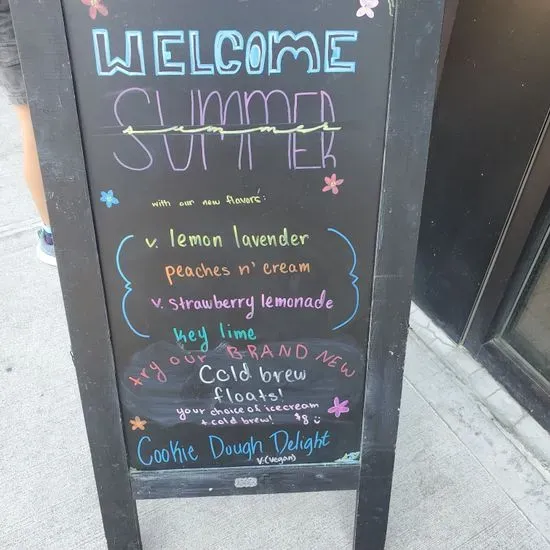 WELCOME
SUMMER
summer
with our new flavors:
v. lemon lavender
peaches n' cream
v. strawberry lemonade
key lime
try our BRAND NEW
Cold brew
floats!
your choice of icecream
+ cold brew! $8
Cookie Dough Delight
v. (vegan)